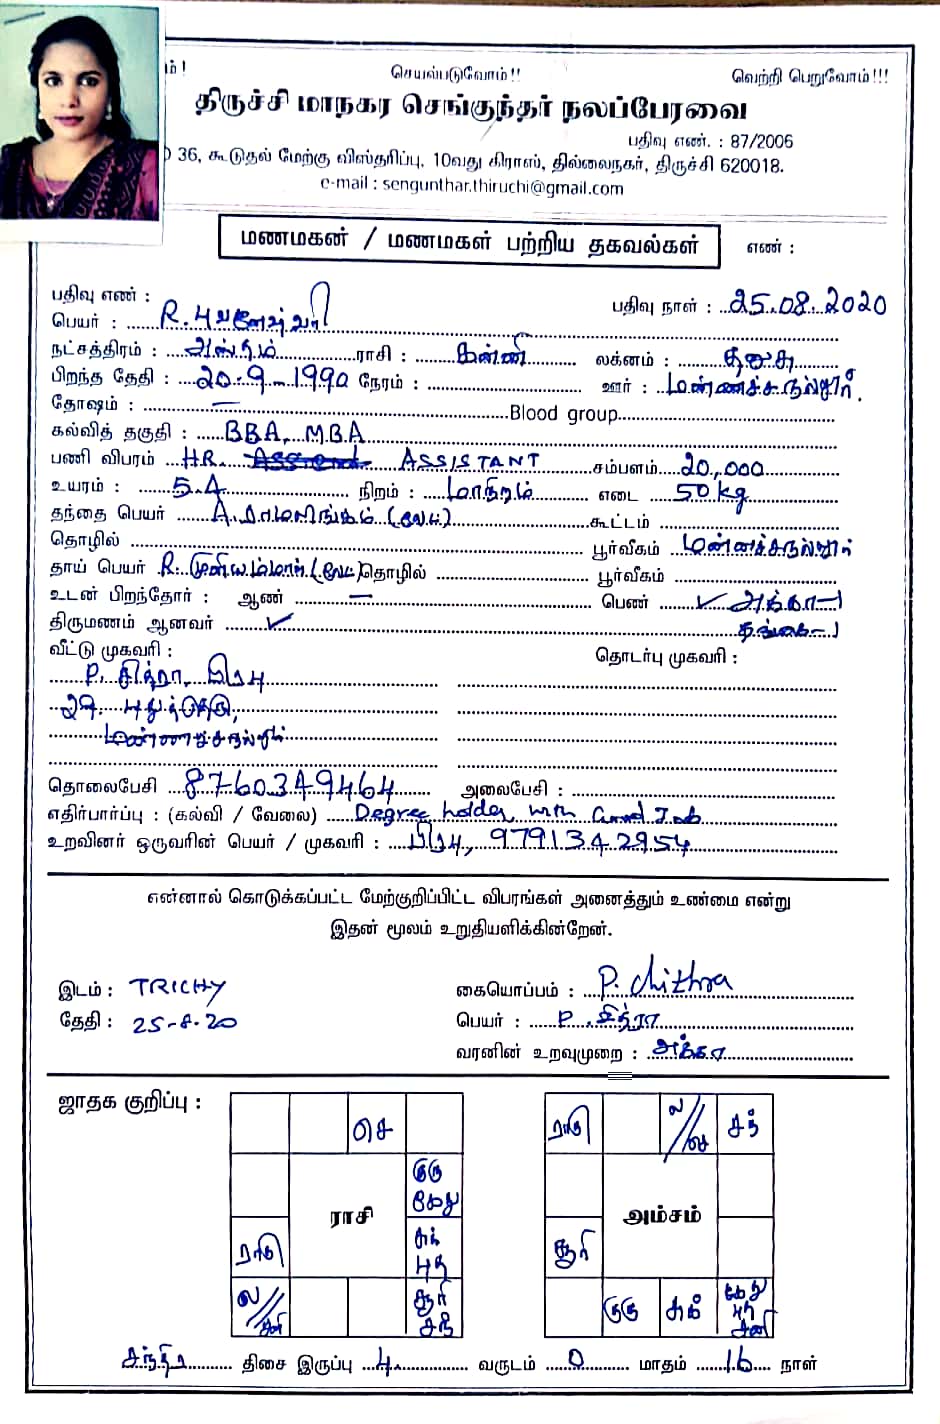 ம்!
செயல்படுவோம்!!
வெற்றி பெறுவோம்!!!
திருச்சி மாநகர செங்குந்தர் நலப்பேரவை
பதிவு எண். : 87/2006
36, கூடுதல் மேற்கு விஸ்தரிப்பு, 10வது கிராஸ், தில்லைநகர், திருச்சி 620018.
e-mail : sengunthar.thiruchi@gmail.com
மணமகன் / மணமகள் பற்றிய தகவல்கள் எண் :
பதிவு எண் : பதிவு நாள் : 25.08.2020
பெயர் : R. புவனேஷ்வரி
நட்சத்திரம் : அஸ்தம் ராசி : கன்னி லக்னம் : தனுசு
பிறந்த தேதி : 20-9-1990 நேரம் : ஊர் : மண்ணச்சநல்லூர்.
தோஷம் : — Blood group
கல்வித் தகுதி : BBA, MBA
பணி விபரம் HR. ASSISTANT சம்பளம் 20,000
உயரம் : 5.4 நிறம் : மாநிறம் எடை 50 kg
தந்தை பெயர் A. ராமலிங்கம் (லேட்) கூட்டம்
தொழில் பூர்வீகம் மண்ணச்சநல்லூர்
தாய் பெயர் R. முனியம்மாள் (லேட்) தொழில் பூர்வீகம்
உடன் பிறந்தோர் : ஆண் — பெண் ✓ அக்கா-1
திருமணம் ஆனவர் ✓ தங்கை-1
வீட்டு முகவரி : தொடர்பு முகவரி :
P. சித்ரா, பிரபு
29. புதுத்தெரு,
மண்ணச்சநல்லூர்
தொலைபேசி 8760349464 அலைபேசி :
எதிர்பார்ப்பு : (கல்வி / வேலை) Degree holder, with Good Job
உறவினர் ஒருவரின் பெயர் / முகவரி : பிரபு, 9791342954
என்னால் கொடுக்கப்பட்ட மேற்குறிப்பிட்ட விபரங்கள் அனைத்தும் உண்மை என்று
இதன் மூலம் உறுதியளிக்கின்றேன்.
இடம் : TRICHY கையொப்பம் : P. Chithra
தேதி : 25-8-20 பெயர் : P. சித்ரா
வரனின் உறவுமுறை : அக்கா
ஜாதக குறிப்பு :
செ
குரு
கேது
ராசி
சுக்
புத
ராகு
ல//சனி
சூரி
சந்
ராகு ல//செ சந்
அம்சம்
சூரி
குரு சுக் கேது
புத
சனி
சந்திர திசை இருப்பு 4 வருடம் 0 மாதம் 16 நாள்